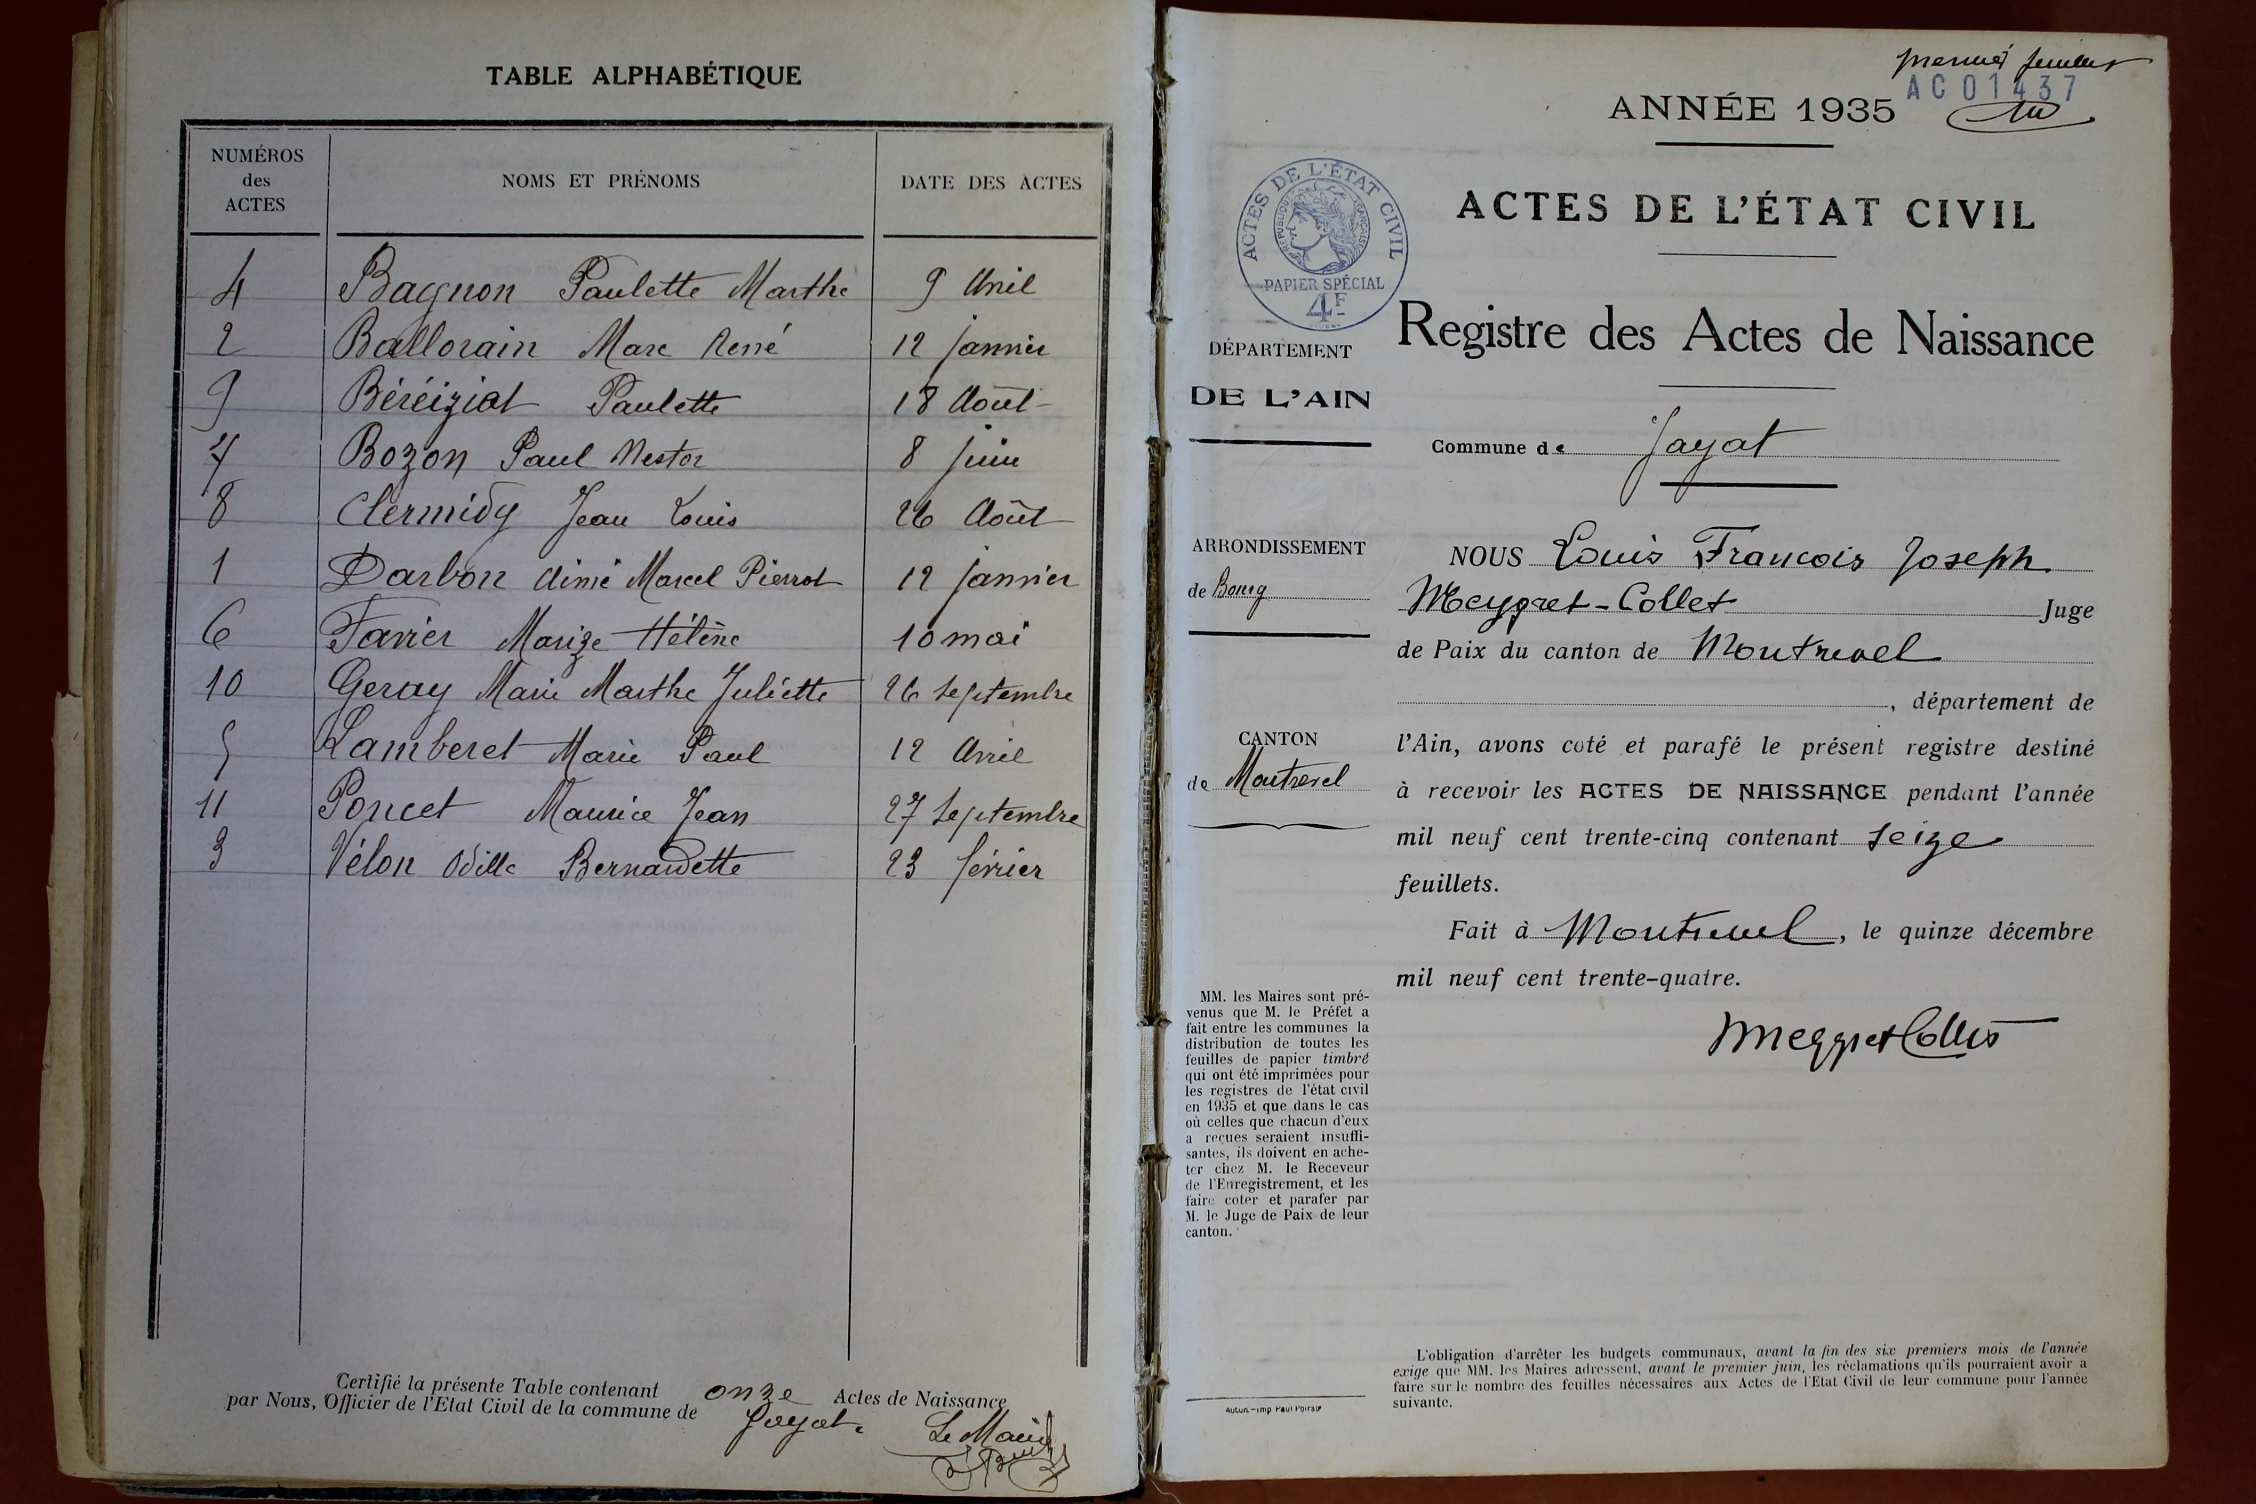 TABLE ALPHABÉTIQUE
NUMÉROS des ACTES NOMS ET PRÉNOMS DATE DES ACTES
4 Bagnon Paulette Marthe 9 Avril
2 Ballorain Marc René 12 janvier
9 Béréiziat Paulette 18 Août
7 Bozon Paul Nestor 8 juin
8 Clermidy Jean Louis 26 Août
1 Darbon Aimé Marcel Pierrot 12 janvier
6 Favier Marize Hélène 10 mai
10 Geray Marie Marthe Juliette 26 septembre
5 Lamberet Marie Paul 12 Avril
11 Poncet Maurice Jean 27 septembre
3 Vélon Odille Bernardette 23 février
Certifié la présente Table contenant onze Actes de Naissance
par Nous, Officier de l'Etat Civil de la commune de Jayat.
Le Maire
premier feuillet
AC01437
ANNÉE 1935
ACTES DE L'ÉTAT CIVIL
ACTES DE L'ÉTAT CIVIL
RÉPUBLIQUE FRANÇAISE
PAPIER SPÉCIAL
4F
Registre des Actes de Naissance
DÉPARTEMENT
DE L'AIN
Commune de Jayat
ARRONDISSEMENT
de Bourg
CANTON
de Montrevel
NOUS Louis Francois Joseph
Meygret-Collet Juge
de Paix du canton de Montrevel
, département de
l'Ain, avons coté et parafé le présent registre destiné
à recevoir les ACTES DE NAISSANCE pendant l'année
mil neuf cent trente-cinq contenant seize
feuillets.
Fait à Montrevel, le quinze décembre
mil neuf cent trente-quatre.
Meygret Collet
MM. les Maires sont pré-
venus que M. le Préfet a
fait entre les communes la
distribution de toutes les
feuilles de papier timbré
qui ont été imprimées pour
les registres de l'état civil
en 1935 et que dans le cas
où celles que chacun d'eux
a reçues seraient insuffi-
santes, ils doivent en ache-
ter chez M. le Receveur
de l'Enregistrement, et les
faire coter et parafer par
M. le Juge de Paix de leur
canton.
L'obligation d'arrêter les budgets communaux, avant la fin des six premiers mois de l'année
exige que MM. les Maires adressent, avant le premier juin, les réclamations qu'ils pourraient avoir a
faire sur le nombre des feuilles nécessaires aux Actes de l'Etat Civil de leur commune pour l'année
suivante.
Autun.-Imp Paul Poirson